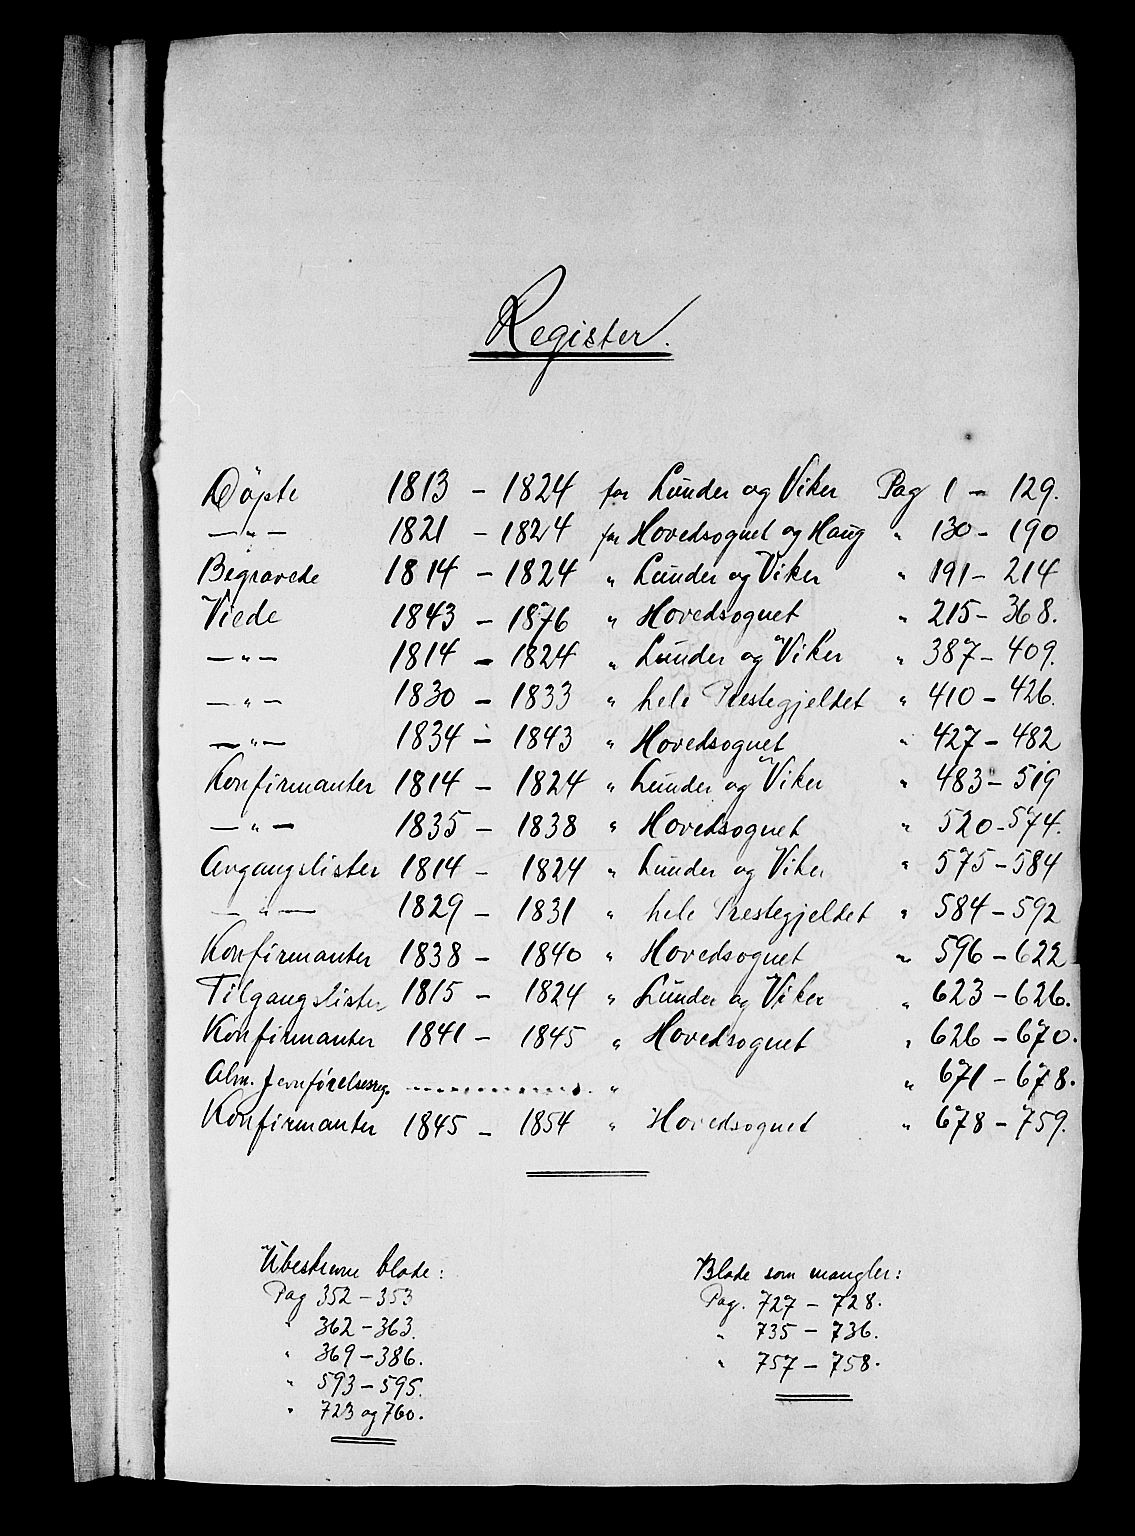 Register.
Döpte 1813 - 1824 for Lunder og Viker Pag 1 - 129.
— " — 1821 - 1824 for Hovedsognet og Haug " 130 - 190
Begravede 1814 - 1824 " Lunder og Viker " 191 - 214
Viede 1843 - 1876 " Hovedsognet " 215 - 368.
— " — 1814 - 1824 " Lunder og Viker " 387 - 409.
— " — 1830 - 1833 " hele Prestegjeldet " 410 - 426.
— " — 1834 - 1843 " Hovedsognet " 427 - 482
Konfirmanter 1814 - 1824 " Lunder og Viker " 483 - 519
— " — 1835 - 1838 " Hovedsognet " 520 - 574.
Avgangslister 1814 - 1824 " Lunder og Viker " 575 - 584
— " — 1829 - 1831 " hele Prestegjeldet " 584 - 592
Konfirmanter 1838 - 1840 " Hovedsognet " 596 - 622
Tilgangslister 1815 - 1824 " Lunder og Viker " 623 - 626.
Konfirmanter 1841 - 1845 " Hovedsognet " 626 - 670.
Alm. Jevnførelsesreg. - - - - - - - - - - " " 671 - 678.
Konfirmanter 1845 - 1854 " Hovedsognet " 678 - 759.
Ubeskrevne blade:
Pag 352 - 353
" 362 - 363.
" 369 - 386.
" 593 - 595.
" 723 og 760.
Blade som mangler:
Pag. 727 - 728.
" 735 - 736.
" 757 - 758.